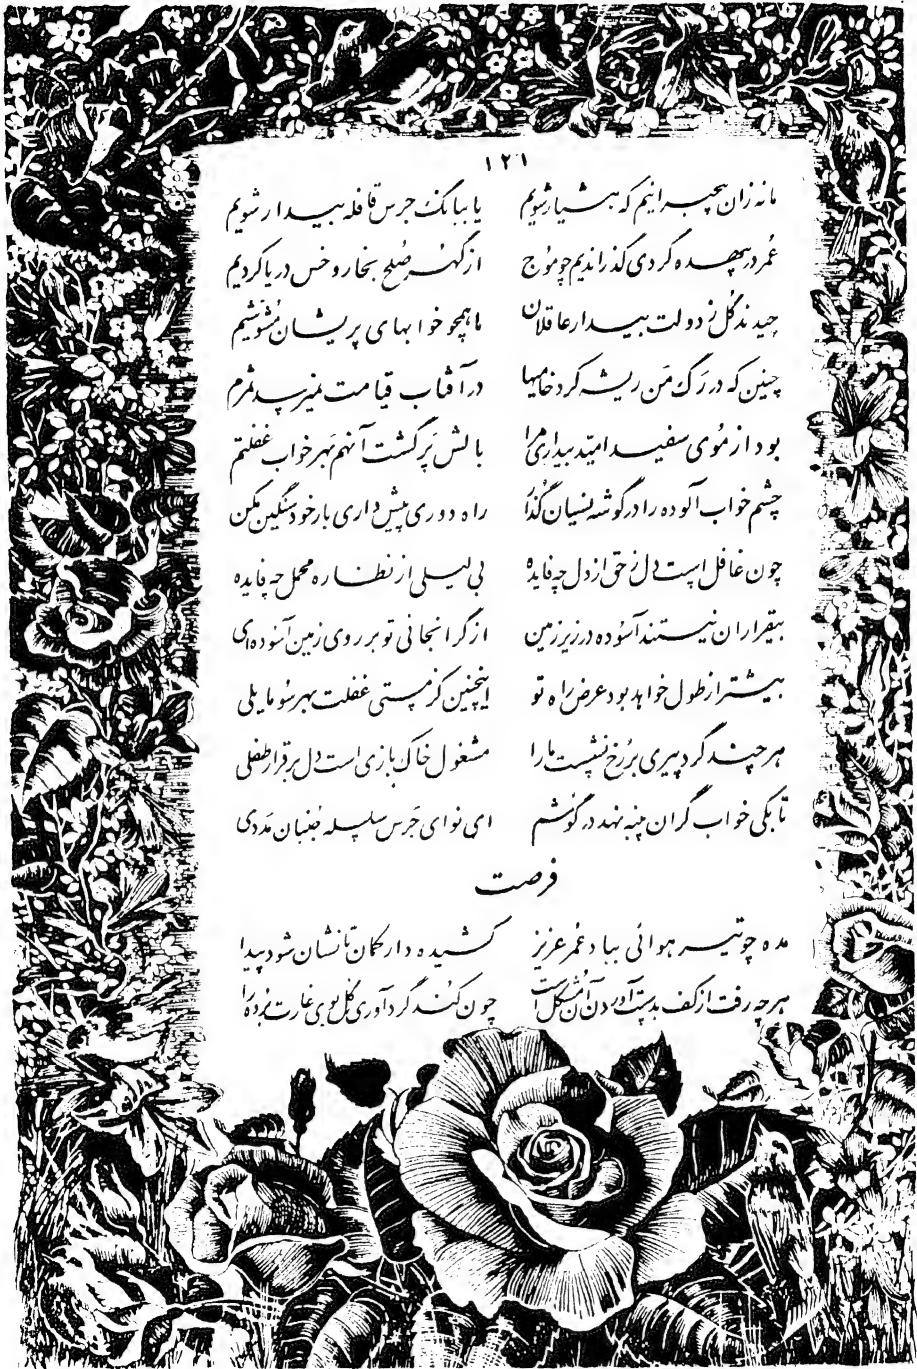 ۱۲۱
ما نه زان بیخبرانیم که هشیار شویم یا ببانگ جرس قافله بیدار شویم
عُمر در بیهده گردی گذراندیم چو مُوج از گهر صُلح بخار و خس دریا کردیم
چیدند گُل ز دولت بیدار عاقلان ما همچو خوابهای پریشان مُشوّشیم
چنین که در رَگ مَن ریشه کرد خامیها در آفتاب قیامت نمیرسد ثمرم
بود از مُوی سفید امیّد بیداری مرا بالش پَر گشت آنهم بَهر خواب غفلتم
چشم خواب آلوده را در گوشه نسیان گُذار راه دوری پیش داری بار خود سنگین مکن
چون غافل است دل ز حق از دل چه فایده بی لیلی از نظاره محمل چه فایده
بیقراران نیستند آسُوده در زیر زمین از گرانجانی تو بر روی زمین آسُوده‌ای
بیشتر از طول خواهد بود عرض راه تو اینچنین کز مستی غفلت بهر سُو مایلی
هر چند گرد پیری بر رُخ نشست ما را مشغول خاک بازی است دل بر قرار طفلی
تا بکی خواب گران پنبه نهد در گوشم ای نوای جَرس سلسله جُنبان مَددی
فرصت
مده چو تیر هوائی بباد عُمر عزیز کشیده دار کمان تا نشان شود پیدا
هر چه رفت از کف بدست آوردن آن مُشکل است چون کُند گردآوری گل بوی غارت بُرده را